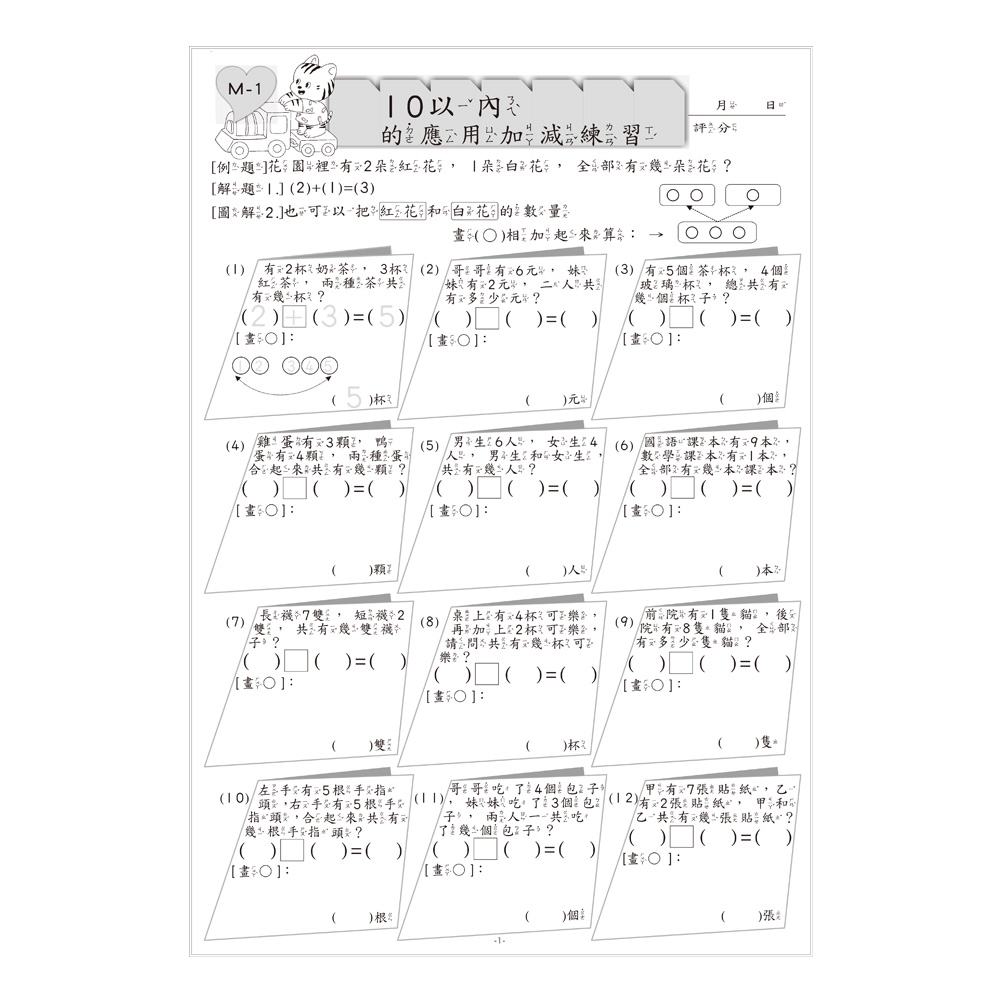 M-1
10以內
的應用加減練習
月 日
評分
[例題]花園裡有2朵紅花，1朵白花，全部有幾朵花？
[解題1.] (2)+(1)=(3)
[圖解2.]也可以把紅花和白花的數量
畫(○)相加起來算：→
(1) 有2杯奶茶，3杯
紅茶，兩種茶共
有幾杯？
(2)+(3)=(5)
[畫○]：
①② ③④⑤
(5)杯
(2) 哥哥有6元，妹
妹有2元，二人共
有多少元？
( )□( )=( )
[畫○]：
( )元
(3) 有5個茶杯，4個
玻璃杯，總共有
幾個杯子？
( )□( )=( )
[畫○]：
( )個
(4) 雞蛋有3顆，鴨
蛋有4顆，兩種蛋
合起來共有幾顆？
( )□( )=( )
[畫○]：
( )顆
(5) 男生6人，女生4
人，男生和女生，
共有幾人？
( )□( )=( )
[畫○]：
( )人
(6) 國語課本有9本，
數學課本有1本，
全部有幾本課本？
( )□( )=( )
[畫○]：
( )本
(7) 長襪7雙，短襪2
雙，共有幾雙襪
子？
( )□( )=( )
[畫○]：
( )雙
(8) 桌上有4杯可樂，
再加上2杯可樂，
請問共有幾杯可
樂？
( )□( )=( )
[畫○]：
( )杯
(9) 前院有1隻貓，後
院有8隻貓，全部
有多少隻貓？
( )□( )=( )
[畫○]：
( )隻
(10) 左手有5根手指
頭，右手有5根手
指頭，合起來共有
幾根手指頭？
( )□( )=( )
[畫○]：
( )根
(11) 哥哥吃了4個包子
，妹妹吃了3個包
子，兩人一共吃
了幾個包子？
( )□( )=( )
[畫○]：
( )個
(12) 甲有7張貼紙，乙
有2張貼紙，甲和
乙共有幾張貼紙？
( )□( )=( )
[畫○]：
( )張
-1-